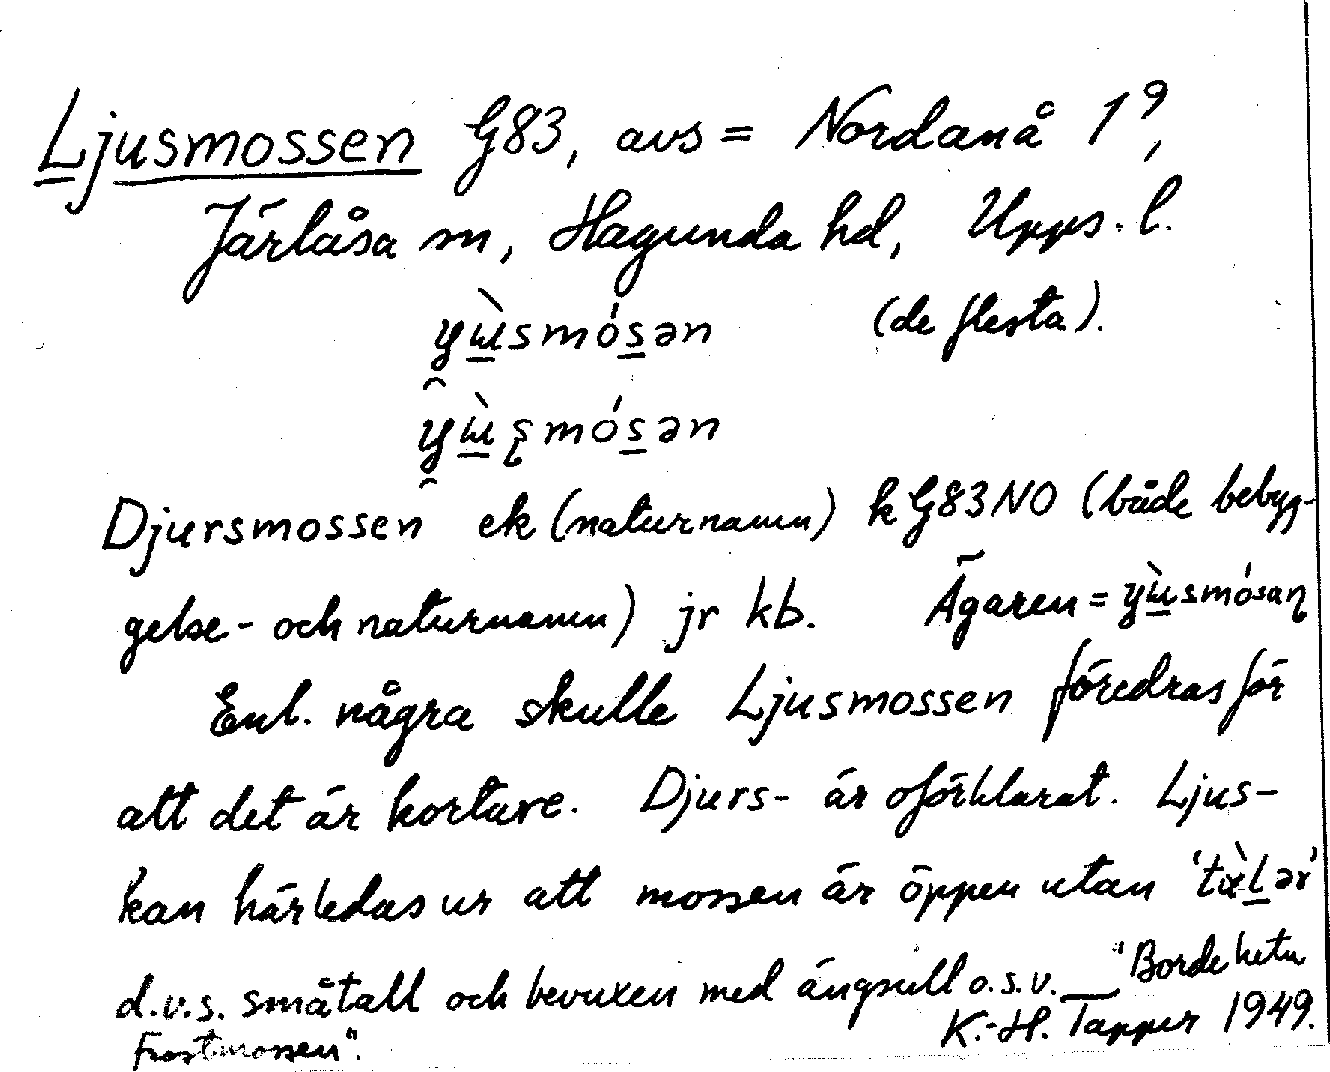 Ljusmossen G83, avs = Nordanå 1⁹,
Järlåsa sn, Hagunda hd, Upps. l.
(de flesta).
Djursmossen ek (naturnamn) k G83NO (både bebyg-
gelse- och naturnamn) jr kb. Ägaren =
Enl. några skulle Ljusmossen föredras för
att det är kortare. Djurs- är oförklarat. Ljus-
kan härledas ur att mossen är öppen utan
d.v.s. småtall och bevuxen med ängsull o.s.v. "Borde heta
Frostmossen".
K.-H. Tapper 1949.